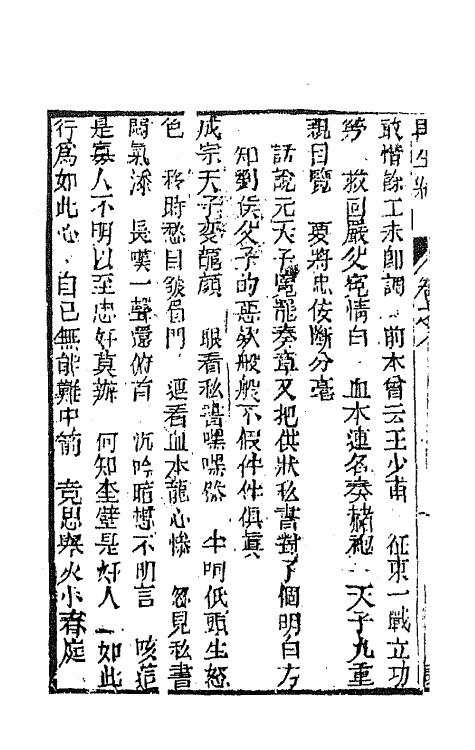 再生緣 卷十六
敢惜餘工未卽調 前本曾云王少甫 征東一戰立功
勞 救回嚴父寃情白 血本連名奏赭袍 天子九重
親目覽 要將忠佞斷分毫
話說元天子覽罷奏章又把供狀私書對了個明白方
知劉侯父子的惡欵般般不假件件俱眞
成宗天子變龍顔 眼看私書嘿嘿然 半晌低頭生怒
色 移時愁目皺眉門 還看血本龍心慘 忽見私書
悶氣添 長嘆一聲還俯首 沉吟暗想不明言 咳這
是寡人不明以至忠奸莫辨 何知奎璧是奸人 如此
行爲如此心 自已無能難中箭 竟思與火小春庭